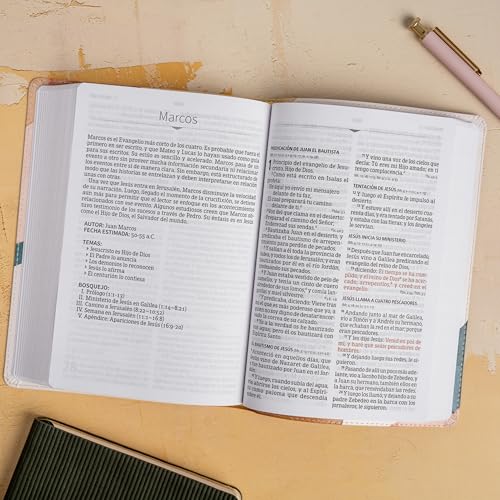 Marcos
Marcos es el Evangelio más corto de los cuatro. Es probable que fuera el
primero en ser escrito, y que Mateo y Lucas lo hayan usado como guía
para sus escritos. Su estilo es sencillo y acelerado. Marcos pasa de un
evento a otro sin proveer mucha información secundaria ni relacionar
los eventos entre sí de manera clara. Sin embargo, está estructurado de
modo que las historias se entrelazan y deben interpretarse en relación
unas con otras.
Una vez que Jesús entra en Jerusalén, Marcos disminuye la velocidad
de su narración. Luego, llegado el momento de la crucifixión, se detiene
aún más para permitir que el lector se enfoque en los acontecimientos
relacionados con ese evento. Algunos estudiosos creen que Marcos
tuvo testimonio de los sucesos a través de Pedro. Su énfasis es en Jesús
como el Hijo de Dios, el Salvador del mundo.
AUTOR: Juan Marcos
FECHA ESTIMADA: 50-55 a.C.
TEMAS:
» Jesucristo es Hijo de Dios
» El Padre lo anuncia
» Los demonios lo reconocen
» Jesús lo afirma
» El centurión lo confiesa
BOSQUEJO:
I. Prólogo (1:1-13)
II. Ministerio de Jesús en Galilea (1:14-8:21)
III. Camino a Jerusalén (8:22-10:52)
IV. Semana en Jerusalén (11:1-16:8)
V. Apéndice: Apariciones de Jesús (16:9-20)
PREDICACIÓN DE JUAN EL BAUTISTA
Principio del evangelio de Jesu-
cristo, Hijo de Dios.
Como está escrito en Isaías el
profeta:
He aquí yo envío mi mensajero
delante de tu faz,
El cual preparará tu camino
delante de ti.
Voz del que clama en el desierto:
Preparad el camino del Señor;
Enderezad sus sendas.
Bautizaba Juan en el desierto, y
predicaba el bautismo de arrepen-
timiento para perdón de pecados.
Y salían a él toda la provincia de
Judea, y todos los de Jerusalén; y eran
bautizados por él en el río Jordán,
confesando sus pecados.
Y Juan estaba vestido de pelo de
camello, y tenía un cinto de cuero
alrededor de sus lomos; y comía lan-
gostas y miel silvestre.
Y predicaba, diciendo: Viene tras
mí el que es más poderoso que yo, a
quien no soy digno de desatar encor-
vado la correa de su calzado.
Yo a la verdad os he bautizado
con agua; pero él os bautizará con
Espíritu Santo.
EL BAUTISMO DE JESÚS
Aconteció en aquellos días, que
Jesús vino de Nazaret de Galilea,
y fue bautizado por Juan en el Jordán.
Y luego, cuando subía del agua,
vio abrirse los cielos, y al Espíri-
tu como paloma que descendía
sobre él.
Y vino una voz de los cielos que
decía: Tú eres mi Hijo amado; en ti
tengo complacencia.
TENTACIÓN DE JESÚS
Y luego el Espíritu le impulsó al
desierto.
Y estuvo allí en el desierto cuaren-
ta días, y era tentado por Satanás,
y estaba con las fieras; y los ángeles
le servían.
JESÚS INICIA SU MINISTERIO
Después que Juan fue encarcelado,
Jesús vino a Galilea predicando el
evangelio del reino de Dios,
diciendo: El tiempo se ha cum-
plido, y el reino de Dios se ha acer-
cado; arrepentíos, y creed en el
evangelio.
JESÚS LLAMA A CUATRO PESCADORES
Andando junto al mar de Galilea,
vio a Simón y a Andrés su hermano,
que echaban la red en el mar; porque
eran pescadores.
Y les dijo Jesús: Venid en pos de
mí, y haré que seáis pescadores de
hombres.
Y dejando luego sus redes, le si-
guieron.
Pasando de allí un poco más ade-
lante, vio a Jacobo hijo de Zebedeo, y
a Juan su hermano, también ellos en
la barca, que remendaban las redes.
Y luego los llamó; y dejando a su
padre Zebedeo en la barca con los
jornaleros, le siguieron.